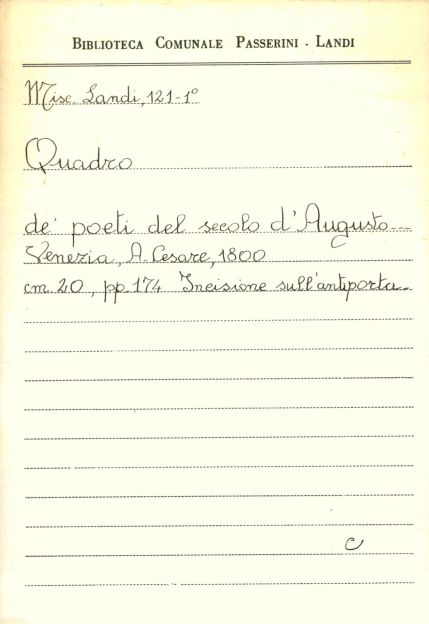 BIBLIOTECA COMUNALE PASSERINI - LANDI
Misc. Landi, 121-1°
Quadro
de' poeti del secolo d'Augusto---
Venezia, A. Cesare, 1800
cm. 20, pp. 174 Incisione sull'antiporta.
C